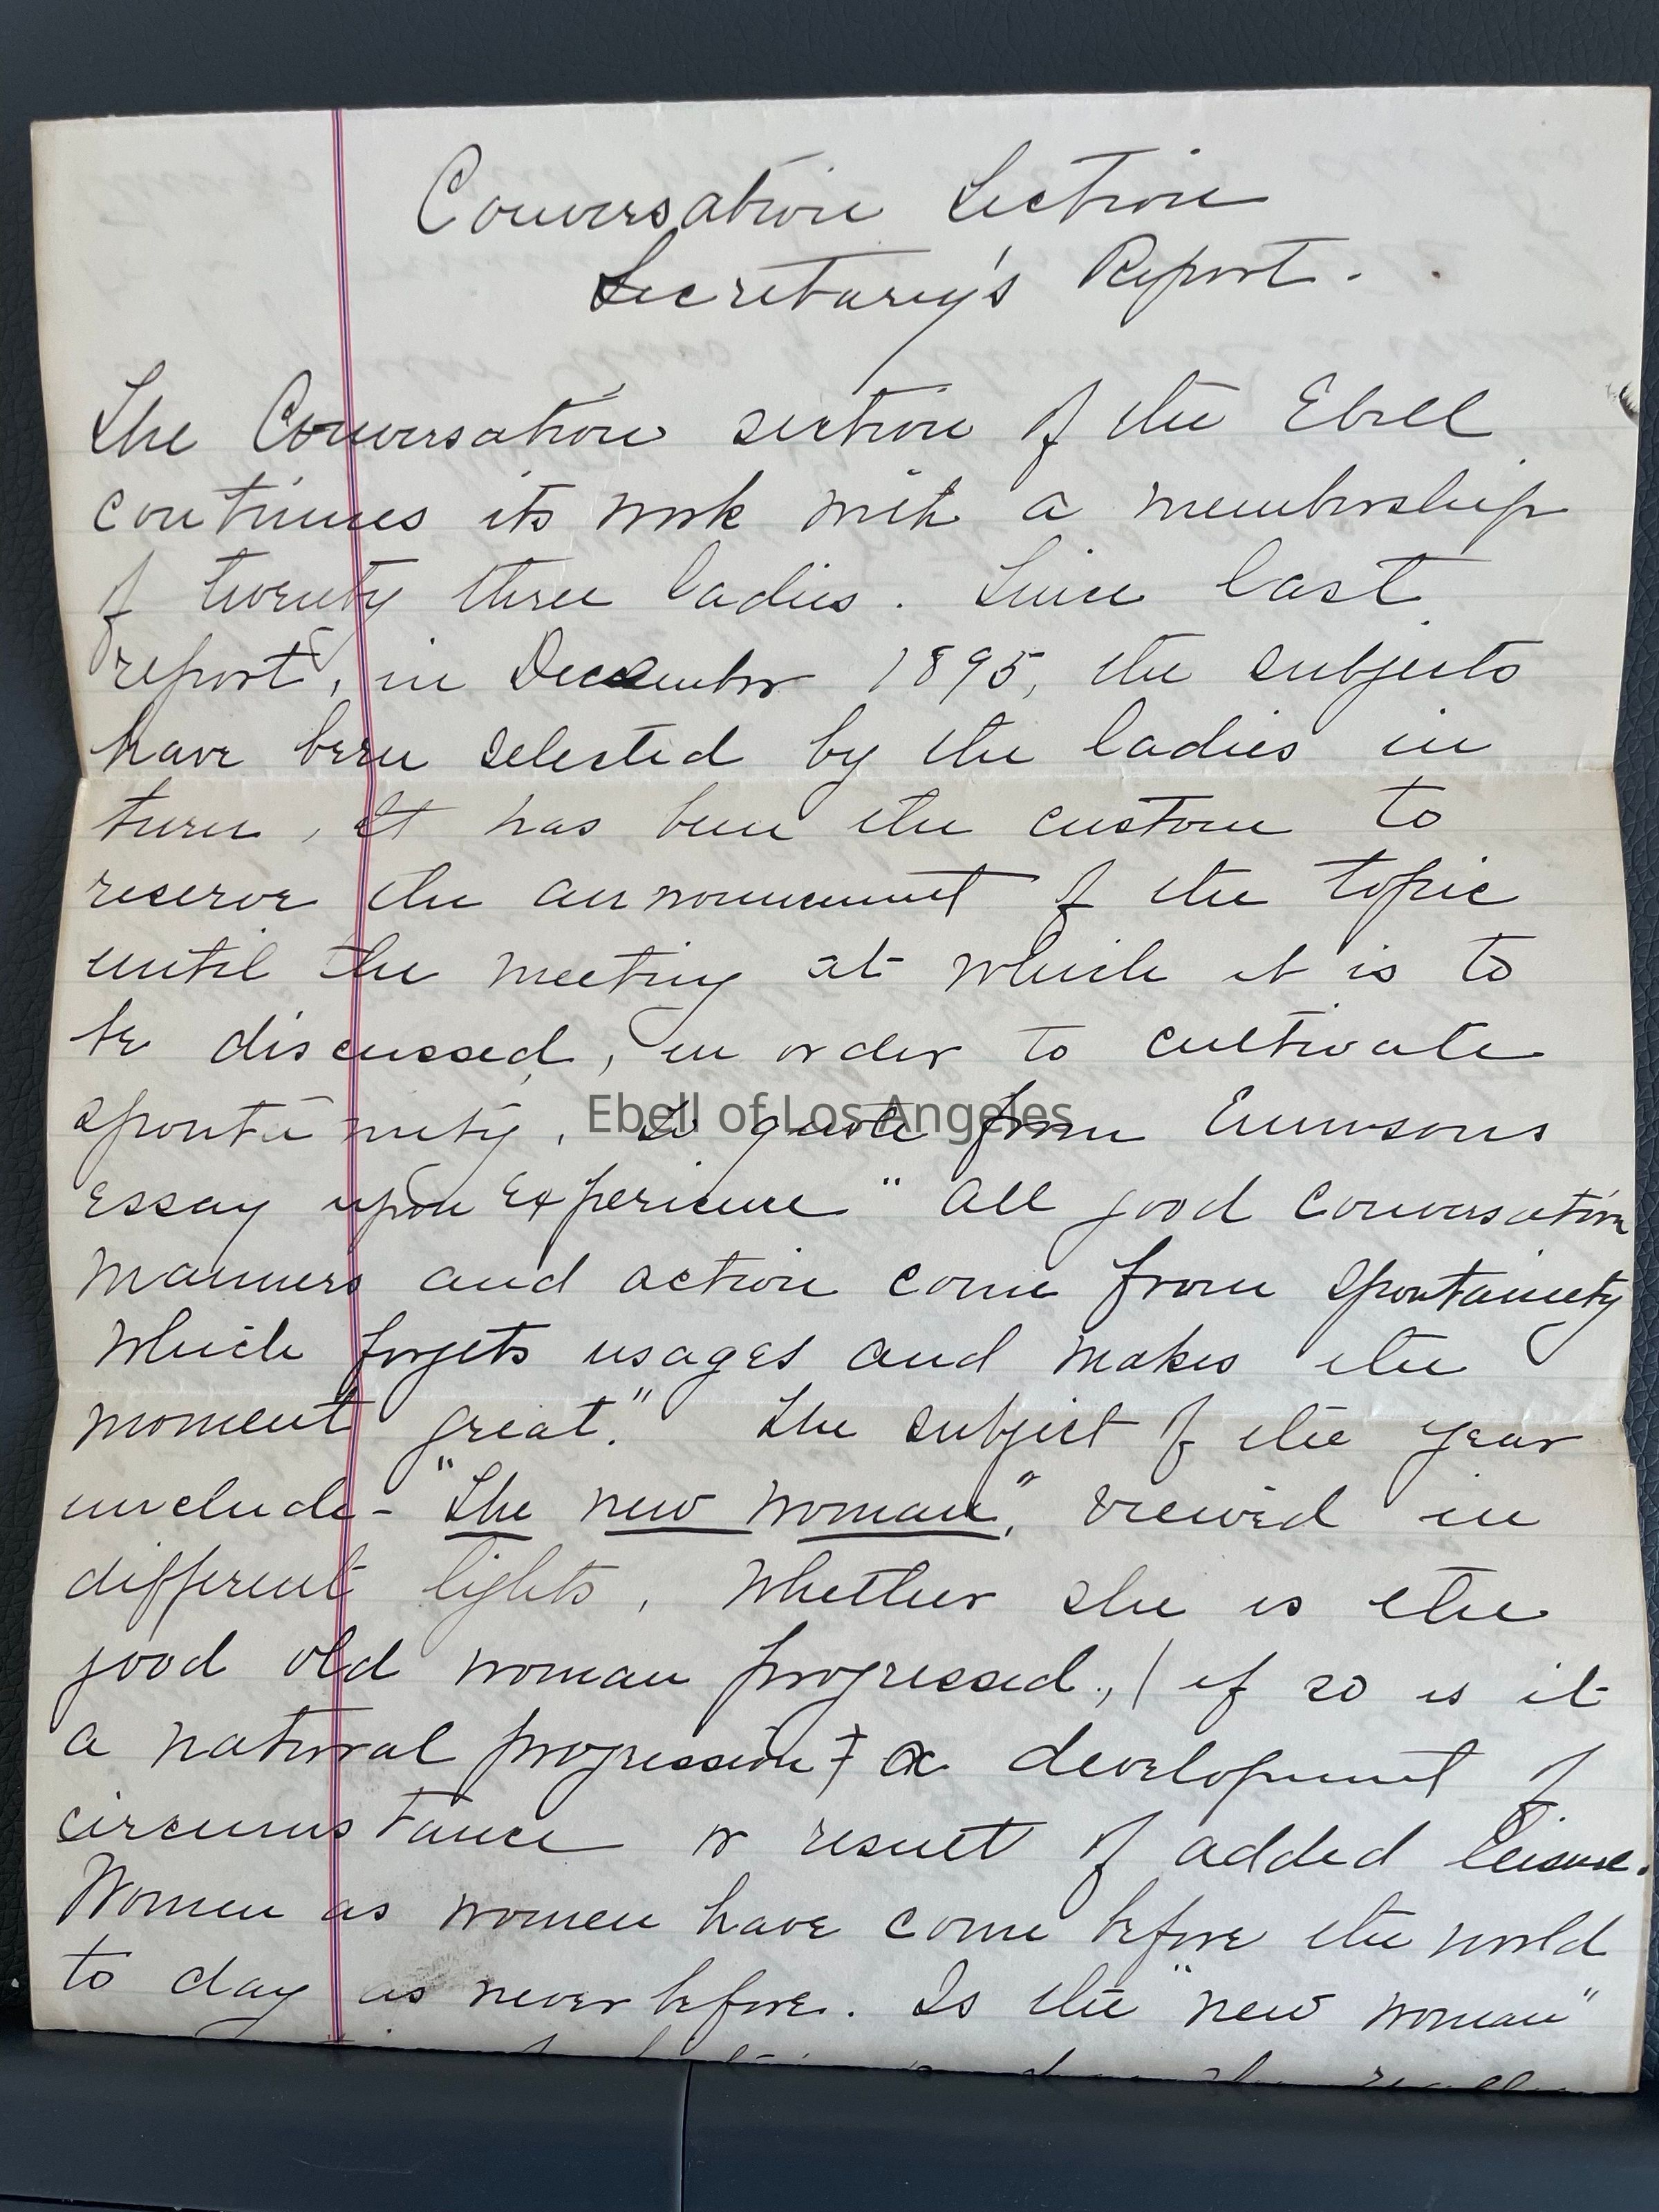 Conversation Section
Secretary's Report.
The Conversation section of the Ebell
continues its work with a membership
of twenty three ladies. Since last
report, in December 1895, the subjects
have been selected by the ladies in
turn, It has been the custom to
reserve the announcement of the topic
until the meeting at which it is to
be discussed, in order to cultivate
spontanity. To quote from Emersons
Essay upon Experience "All good conversation
manners and action come from spontainety
which forgets usages and makes the
moment great." The subject of the year
include - "The new woman", viewed in
different lights, Whether she is the
good old woman progressed, (if so is it
a natural progression) a development of
circumstance or result of added leisure.
Women as women have come before the world
to day as never before. Is the "new woman"
Ebell of Los Angeles